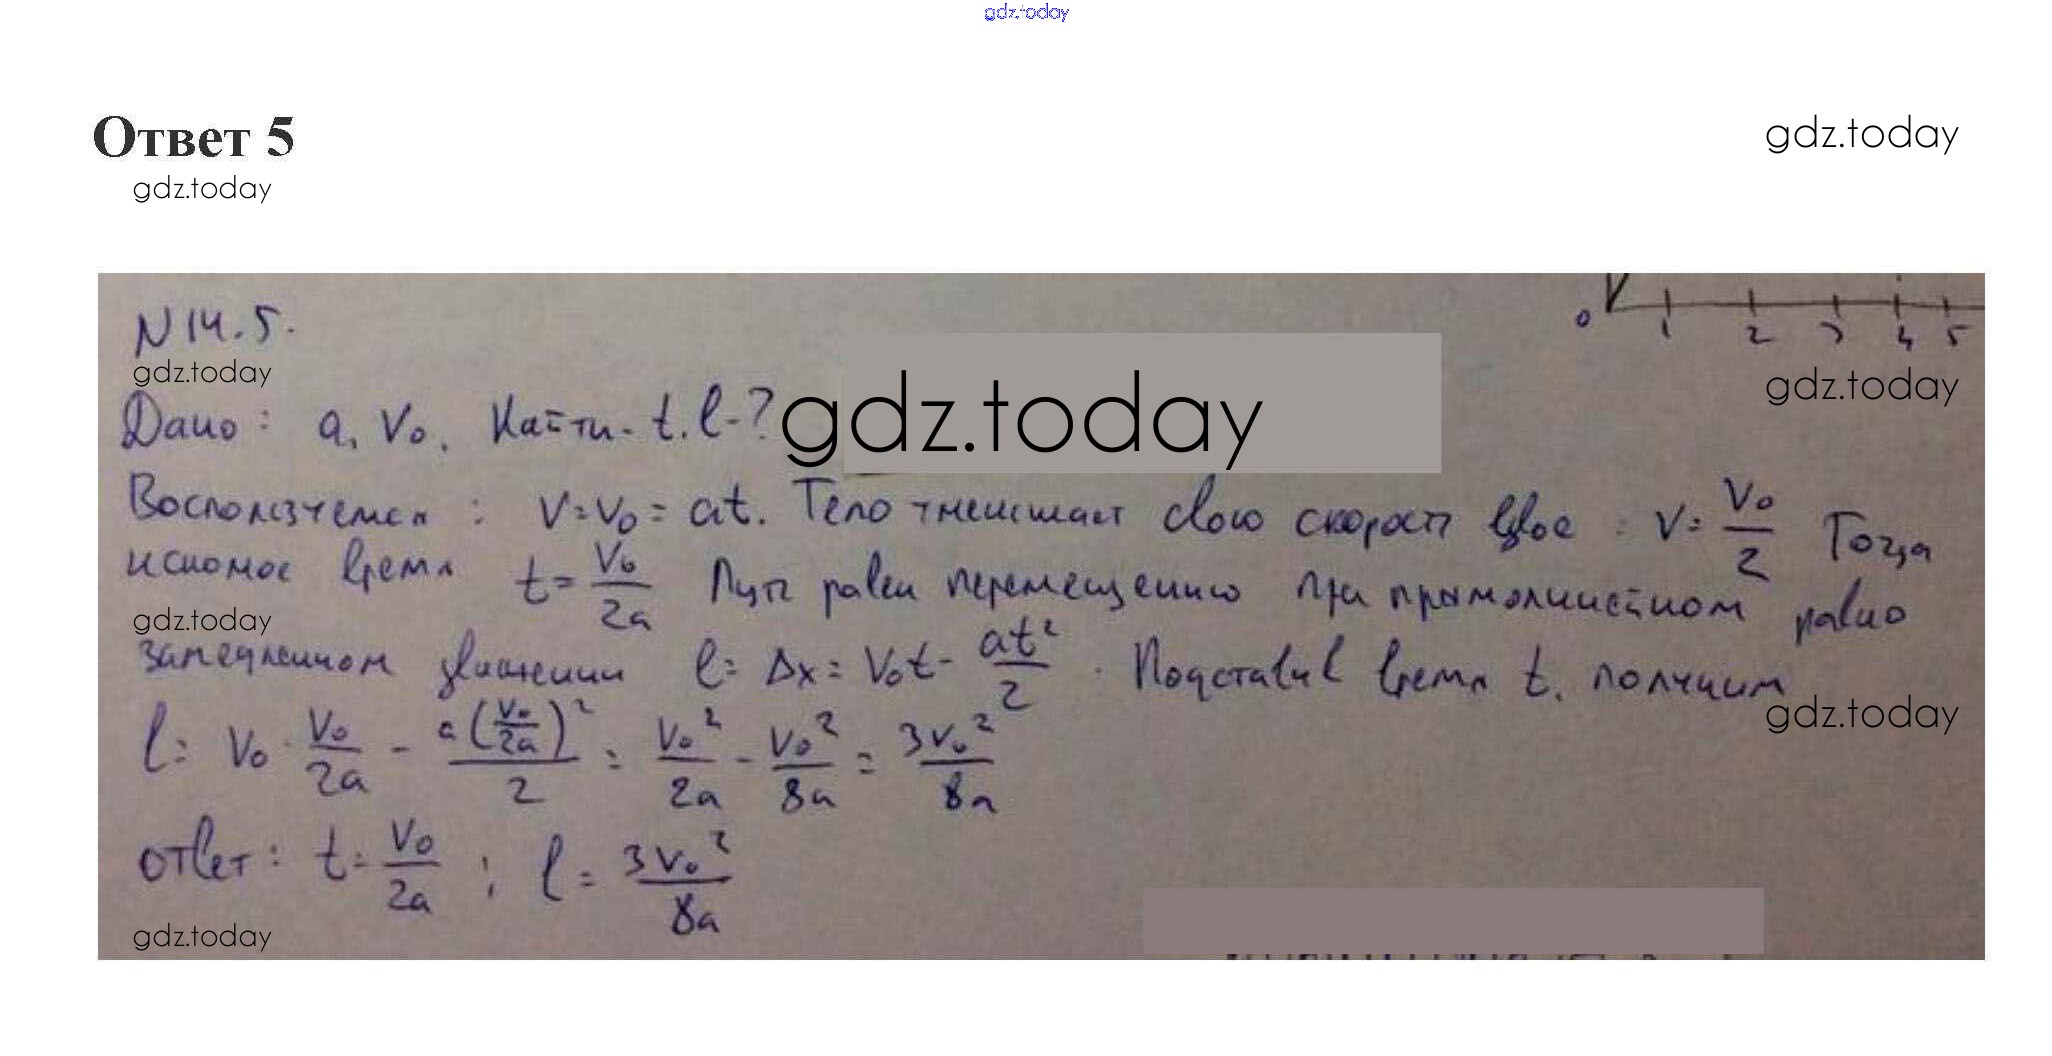 gdz.today
Ответ 5
gdz.today
gdz.today
N14.5.
0 1 2 3 4 5
gdz.today
gdz.today
Дано: a, V₀. Найти - t, l - ?
gdz.today
Воспользуемся : V = V₀ = at. Тело уменьшает свою скорость вдвое : V = V₀/2 Тогда
искомое время t = V₀/2a Путь равен перемещению при прямолинейном равно
gdz.today
замедленном движении l = Δx = V₀t - at²/2 . Подставив время t, получим
gdz.today
l = V₀ · V₀/2a - a(V₀/2a)²/2 = V₀²/2a - V₀²/8a = 3V₀²/8a
ответ: t = V₀/2a ; l = 3V₀²/8a
gdz.today